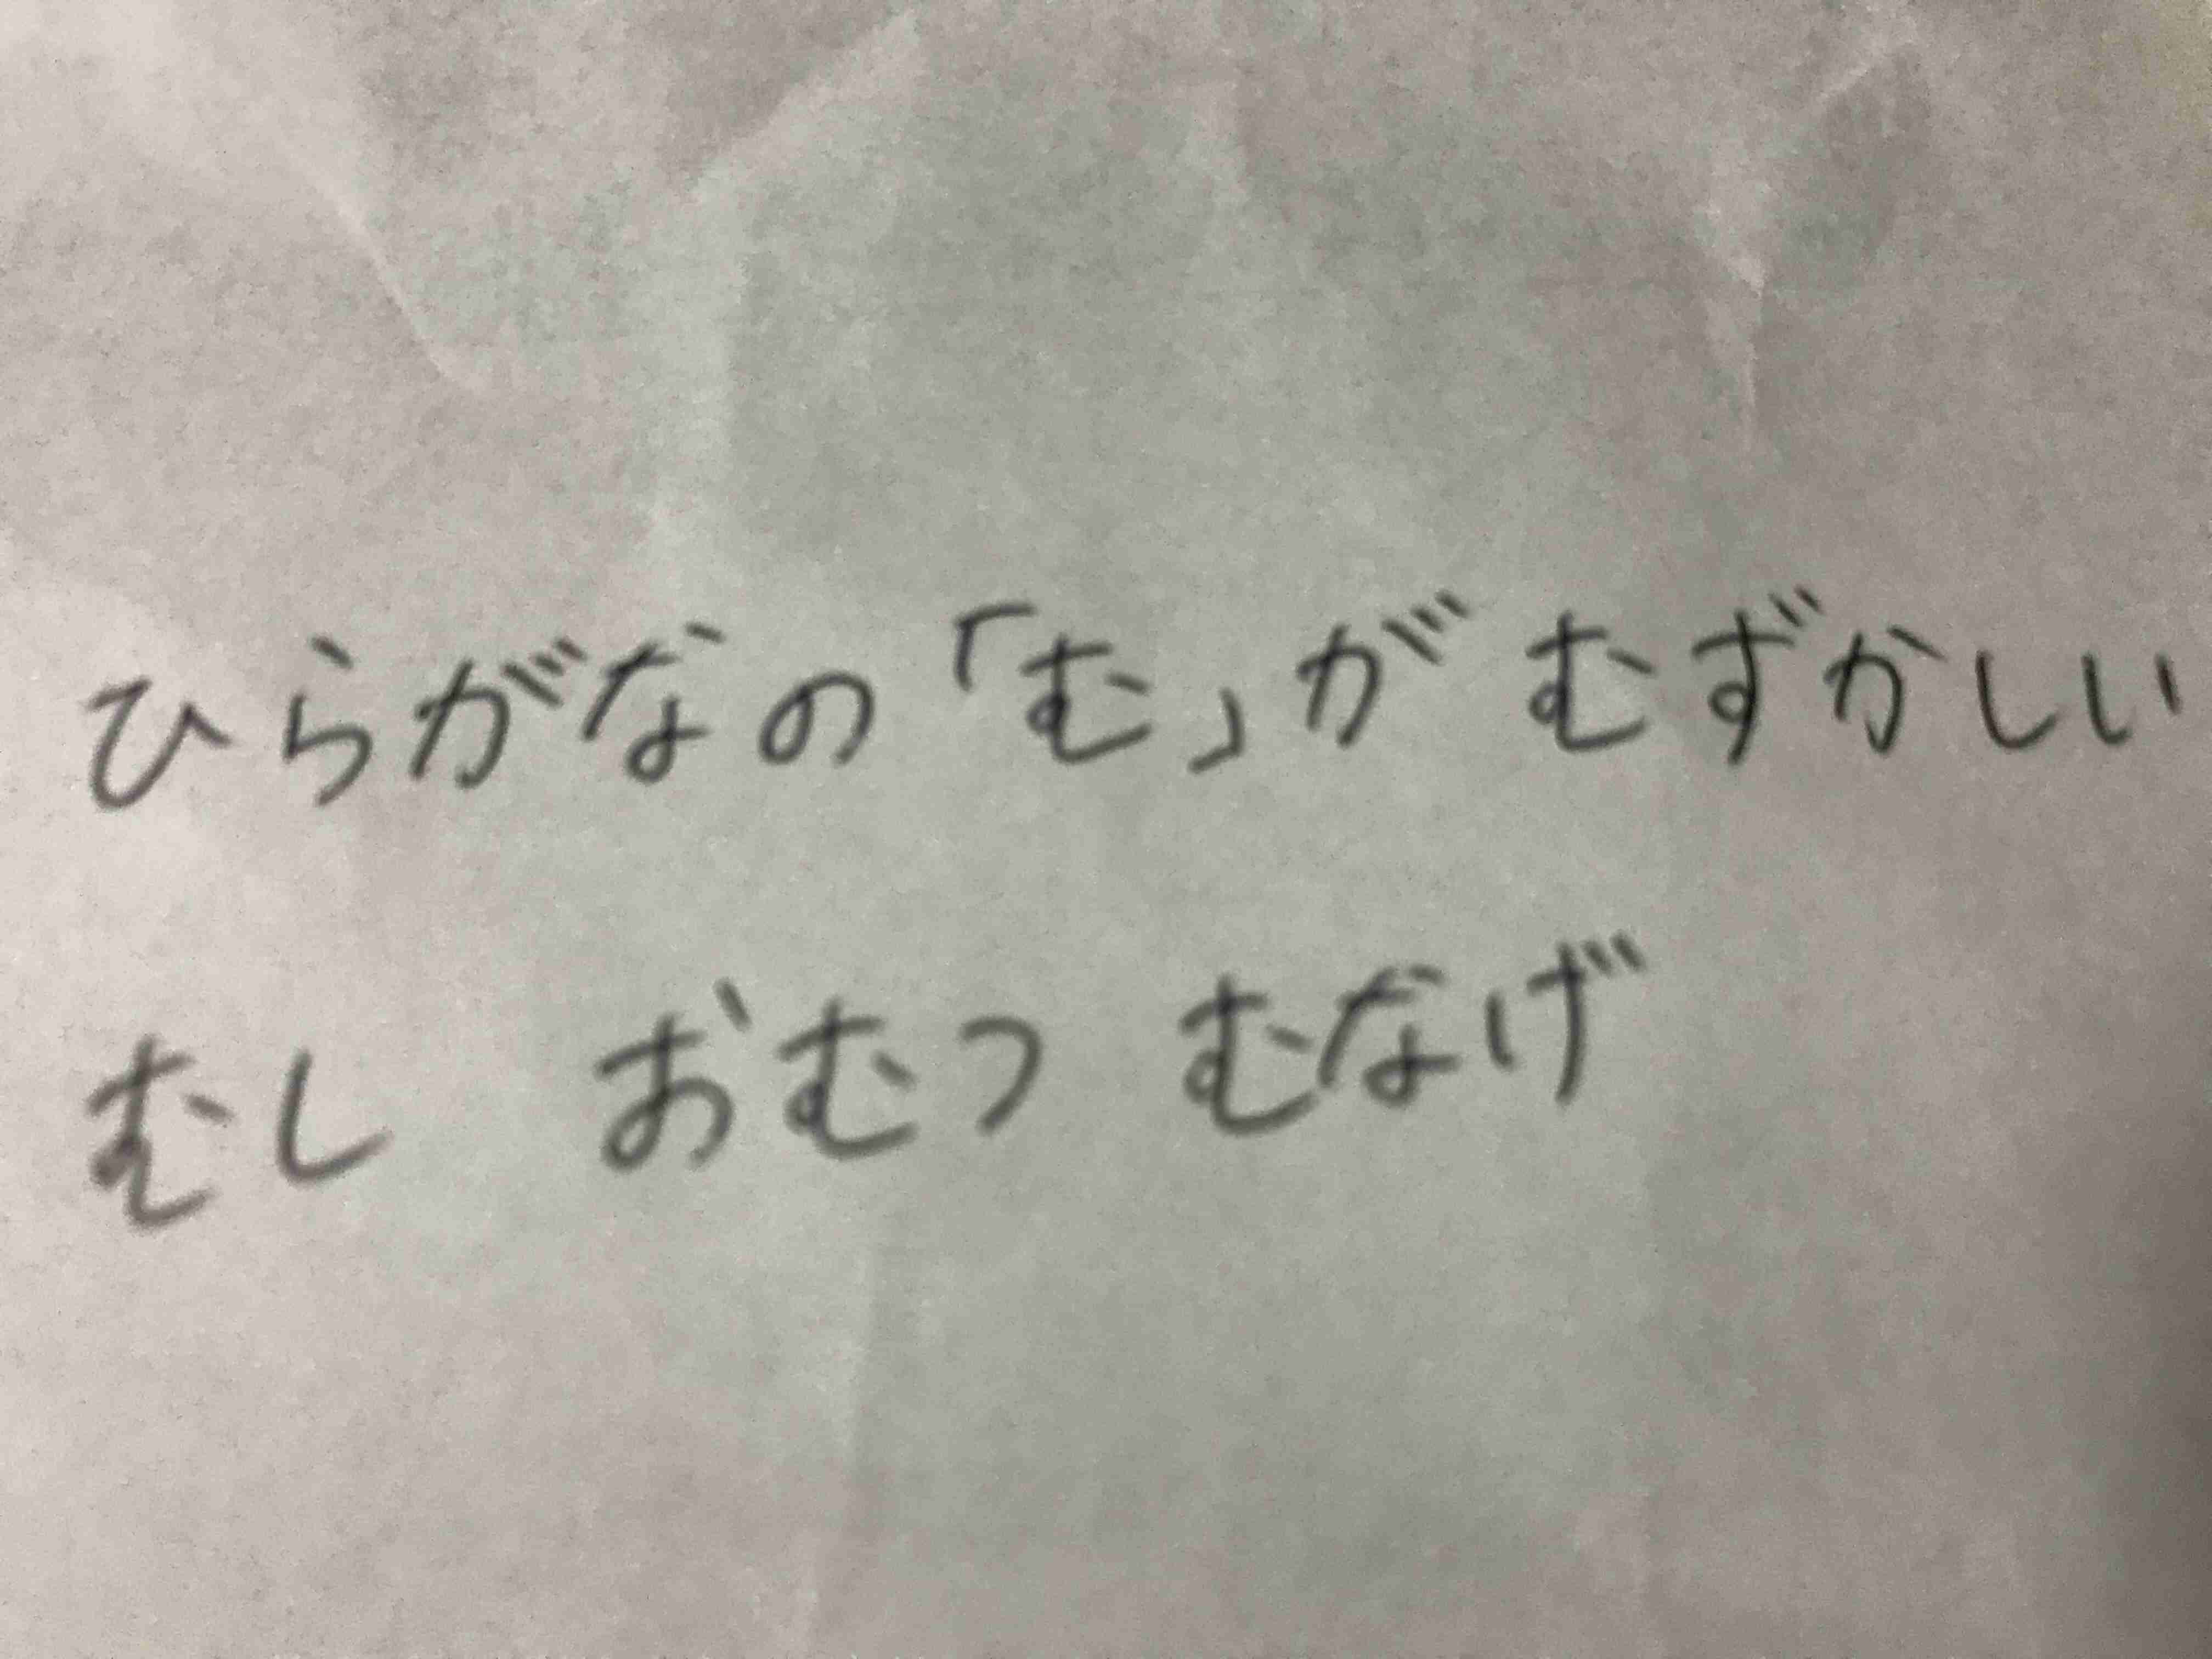 ひらがなの「む」がむずかしい
むし おむつ むなげ